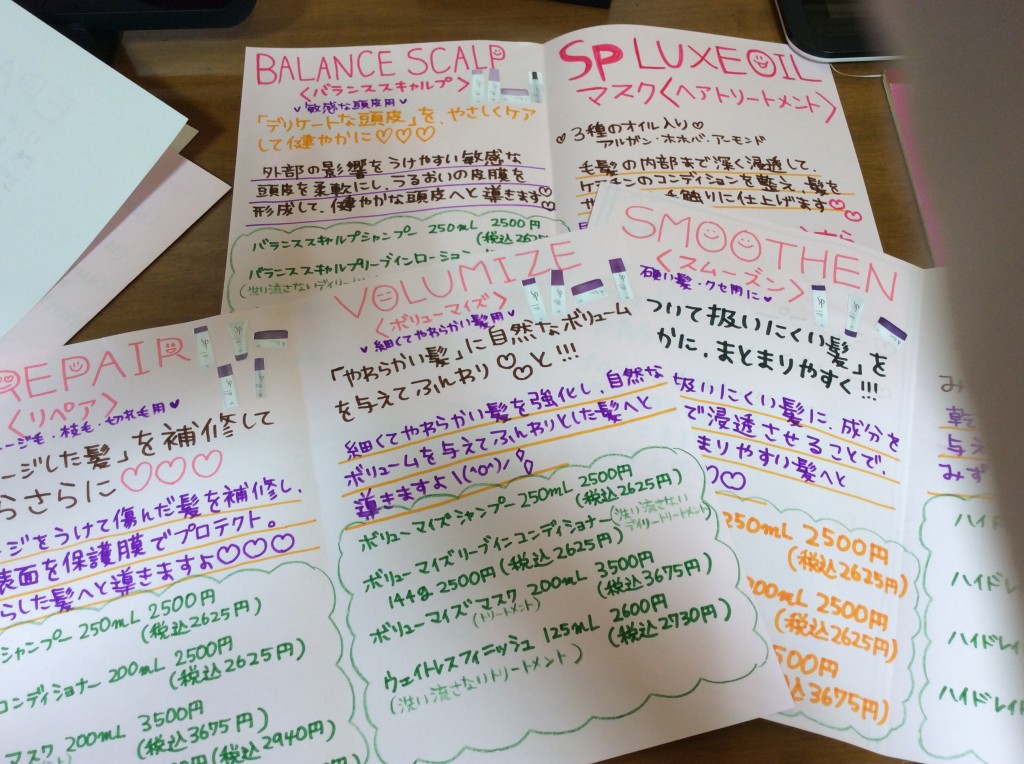 BALANCE SCALP
<バランススキャルプ>
♥敏感な頭皮用♥
「デリケートな頭皮」を、やさしくケア
して健やかに♡♡♡
外部の影響をうけやすい敏感な
頭皮を柔軟にし、うるおいの皮膜を
形成して、健やかな頭皮へと導きます♡
バランススキャルプシャンプー 250mL 2500円
(税込2625
バランススキャルプリーブインローション
(洗い流さない
SP LUXEOIL
マスク<ヘアトリートメント>
♥3種のオイル入り♥
アルガン・ホホバ・アーモンド
毛髪の内部まで深く浸透して、
ケラチンのコンディションを整え、髪を
触りに仕上げます♡♡
REPAIR
<リペア>
ージ毛・枝毛・切れ毛用♥
ージした髪」を補修して
らさらに♡♡♡
ージをうけて傷んだ髪を補修し、
表面を保護膜でプロテクト。
らした髪へと導きますよ♡♡♡
シャンプー 250mL 2500円
(税込2625円)
コンディショナー 200mL 2500円
(税込2625円)
マスク 200mL 3500円
(税込3675円)
(税込2940円)
VOLUMIZE
<ボリューマイズ>
♥細くてやわらかい髪用♥
「やわらかい髪」に自然なボリューム
を与えてふんわり♡♡と!!!
細くてやわらかい髪を強化し、自然な
ボリュームを与えてふんわりとした髪へと
導きますよ\(^o^)/
ボリューマイズシャンプー 250mL 2500円
(税込2625円)
ボリューマイズリーブインコンディショナー(洗い流さない
デイリートリートメント)
144g 2500円(税込2625円)
ボリューマイズマスク 200mL 3500円
(トリートメント) (税込3675円)
ウェイトレスフィニッシュ 125mL 2600円
(洗い流さないトリートメント) (税込2730円)
SMOOTHEN
<スムーズン>
硬い髪・クセ用に♥
ついて扱いにくい髪」を
かに、まとまりやすく!!!
扱いにくい髪に、成分を
で浸透させることで、
まりやすい髪へと
250mL 2500円
(税込2625円)
200mL 2500円
(税込2625円)
500円
(税込3675円)
み
乾
与え
みず
ハイド
ハイドレ
ハイドレイ
ハイドレイ